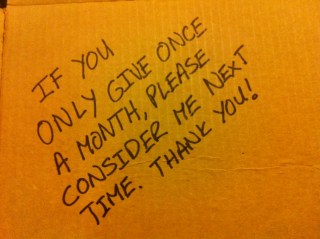 IF YOU
ONLY GIVE ONCE
A MONTH, PLEASE
CONSIDER ME NEXT
TIME. THANK YOU!